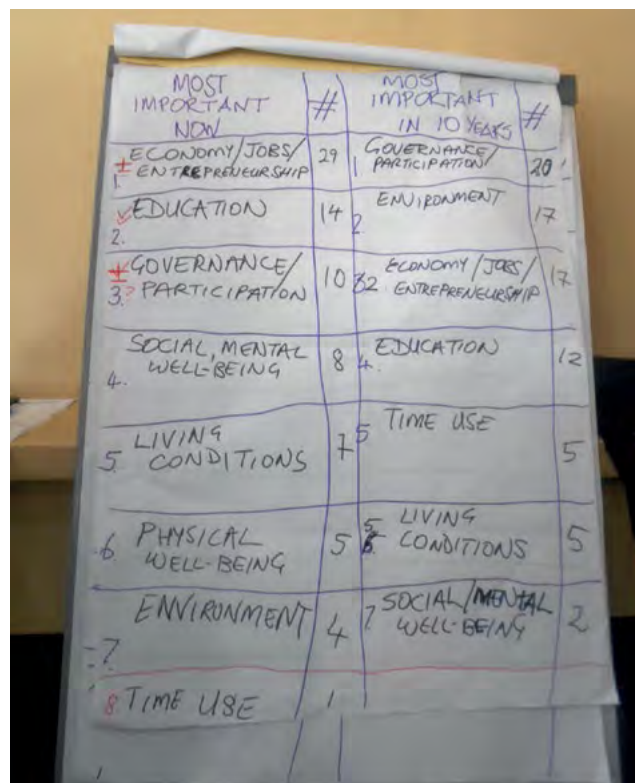 MOST
IMPORTANT
NOW
#
MOST
IMPORTANT
IN 10 YEARS
#
1. ECONOMY/JOBS/
ENTREPRENEURSHIP
29
1 GOVERNANCE/
PARTICIPATION/
20
2. EDUCATION
14
2. ENVIRONMENT
17
3. GOVERNANCE/
PARTICIPATION
10
2 ECONOMY/JOBS/
ENTREPRENEURSHIP
17
4. SOCIAL, MENTAL
WELL-BEING
8
4. EDUCATION
12
5. LIVING
CONDITIONS
7
5 TIME USE
5
6. PHYSICAL
WELL-BEING
5
5 LIVING
CONDITIONS
5
7 ENVIRONMENT
4
7 SOCIAL/MENTAL
WELL-BEING
2
8. TIME USE
1